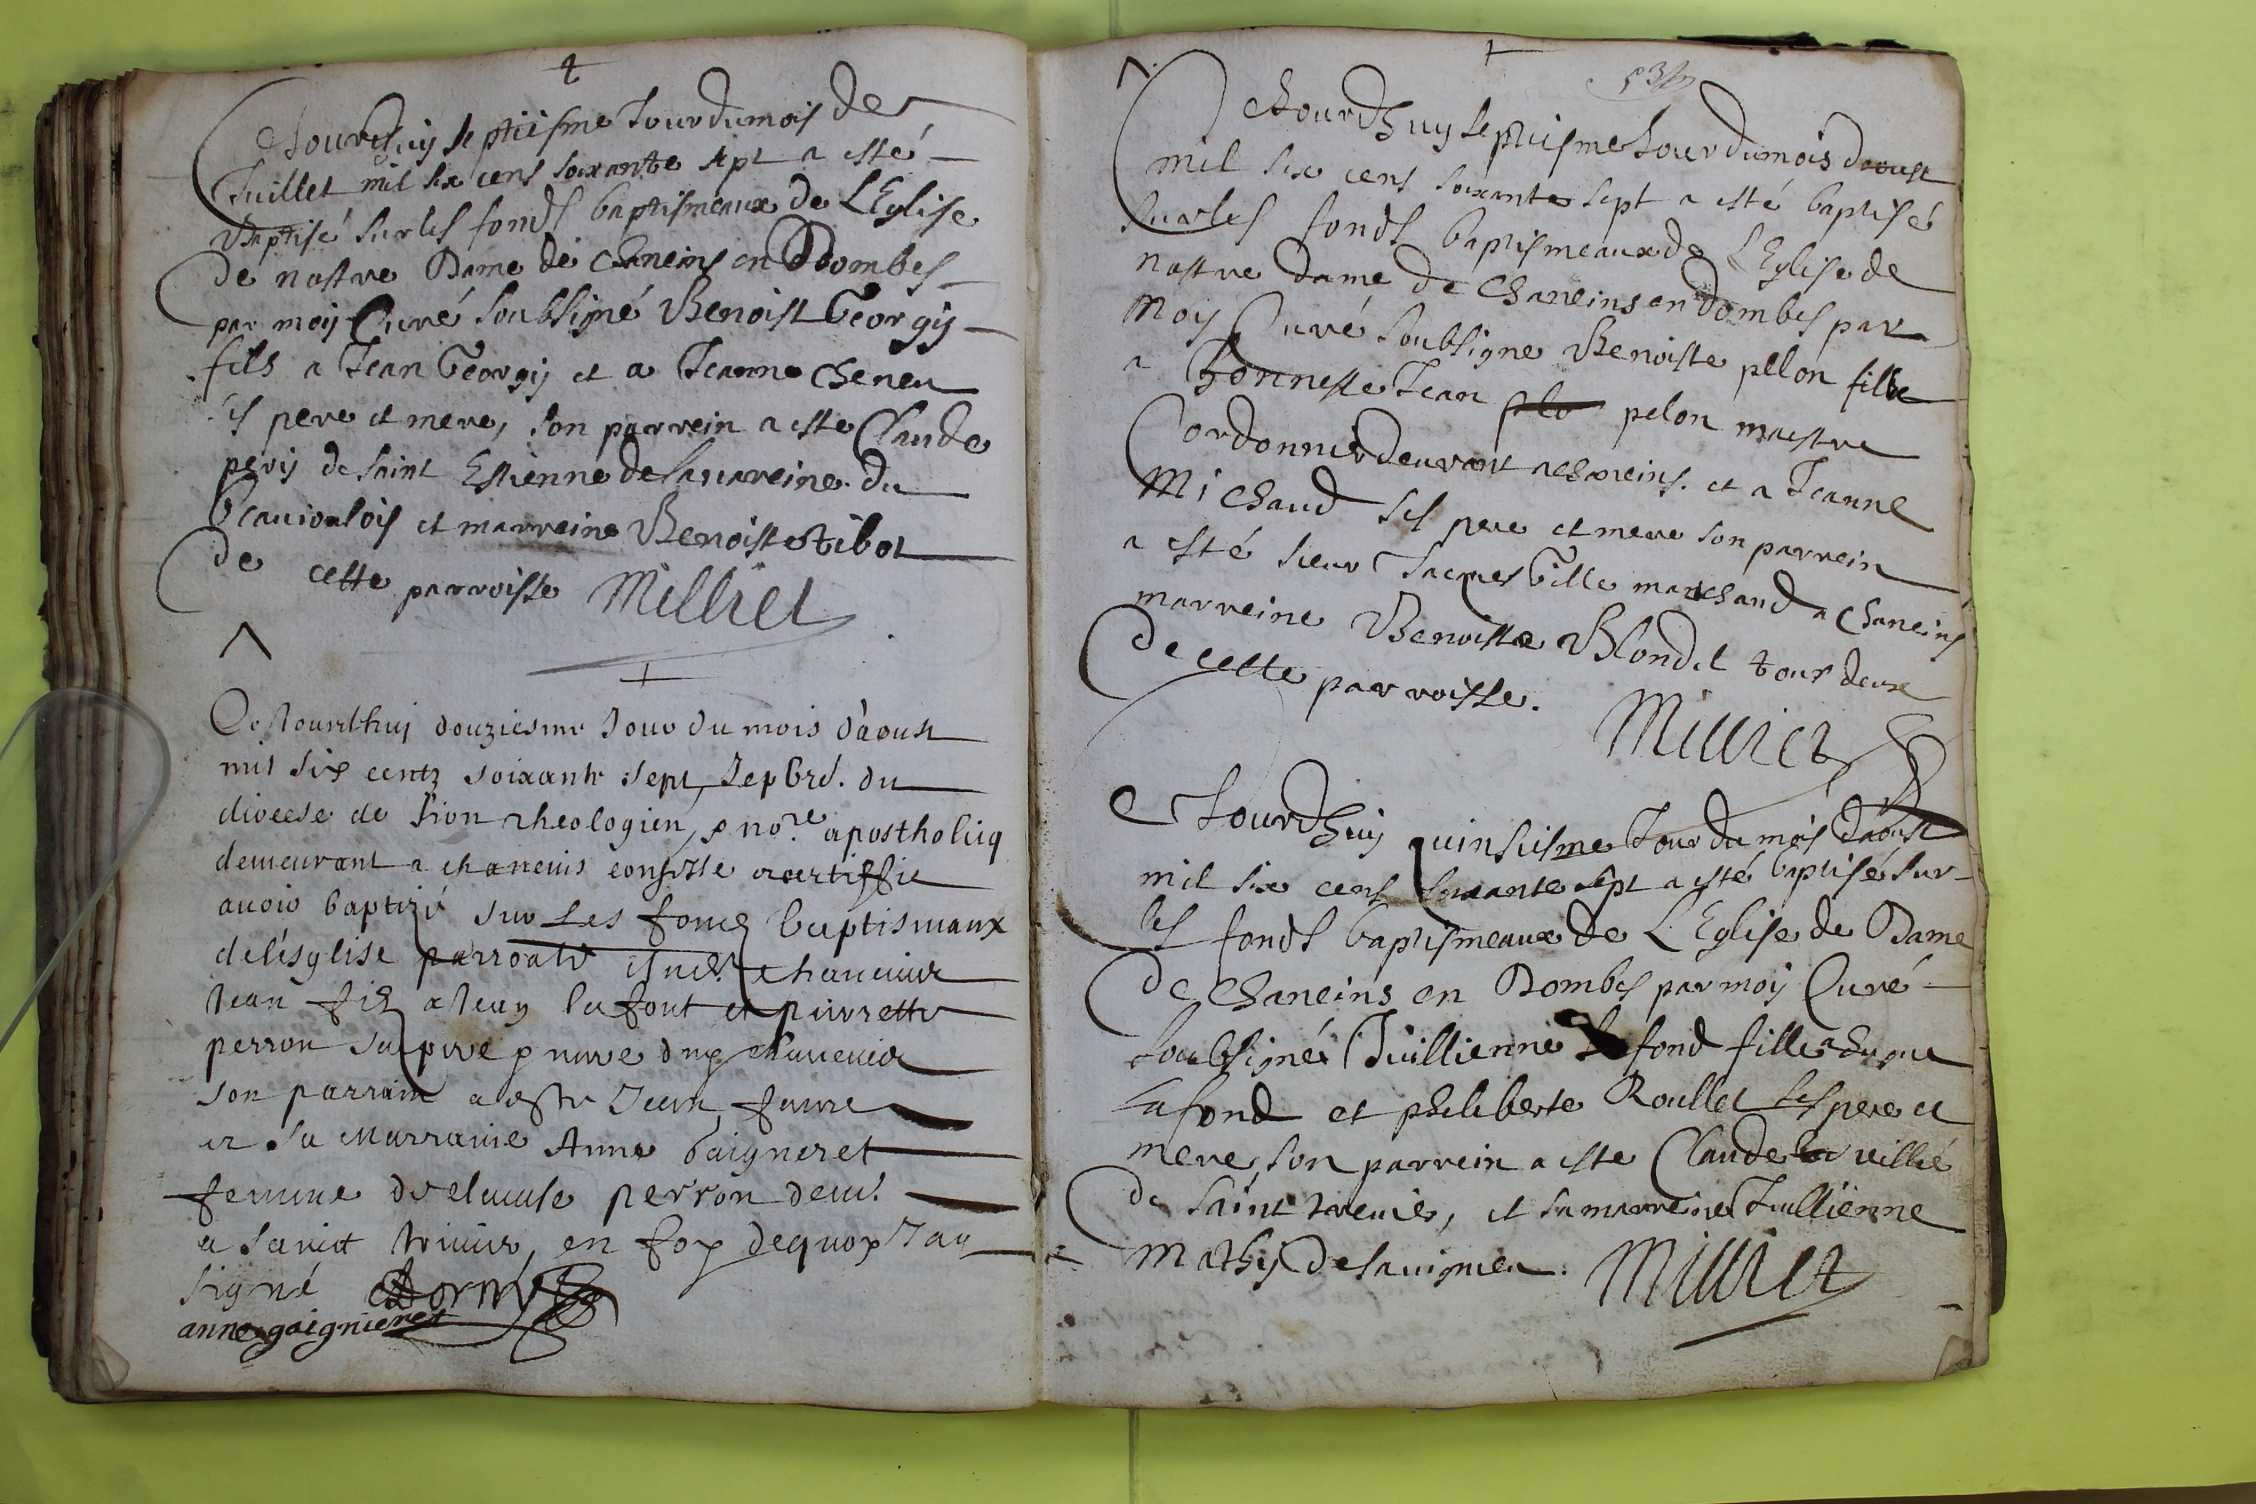 Ce Jourdhuy septiesme Jour du mois de
Juillet mil six cens soixante sept a esté
Baptisé sur les fonds baptismeaux de L Eglise
de nostre Dame de chaneins en Dombes
par moy Curé soubsigné Benoist Georgy
fils a Jean Georgy et a Jeanne cheneu
ses pere et mere, son parrein a este Claude
pery de saint Estienne de la vareine du
Beauiolois et marreine Benoiste tibot
de cette parroisse Milliet
Ce Jourdhuy douziesme Jour du mois d'aoust
mil six centz soixante sept, Je du
diocese de Lion theologien, no.re apostholicq
demeurant a chaneins certiffie
auoir baptizé sur les fonez baptismaux
de lesglise parroale chaneins
Jean filz a Jean la font et pierrette
perron sa pere mere
son parrain a este Jean faure
et sa marraine Anne gaigneret
femme de perron dem.t
a sainct triuier, en foy dequoy Jay
signé
anne gaignieret
53
Ce Jourdhuy septiesme Jour du mois daoust
mil six cens soixante sept a esté baptisé
sur les fonds baptismeaux de L Eglise de
nostre dame de Chaneins en Dombes par
moy Curé soubsigne Benoiste pelon fille
a honneste Jean pelon maestre
Cordonnier demeurant a chaneins. et a Jeanne
Michaud ses pere et mere son parrein
a esté sieur Jacques Gille marchand a Chaneins
marreine Benoiste Blondel tous deux
de cette parroisse.
Milliet
Ce Jourdhuy quinsiesme Jour du mois daoust
mil six cens soixante sept a esté baptisé sur
les fonds baptismeaux de L Eglise de Dame
de Chaneins en Dombes par moy Curé
soubsigné Juillienne Lafond fille a
Lafond et philiberte Roullet ses pere et
mere, son parrein a este Claude la veillié
de saint treuier, et sa marreine Juillienne
mathy de sauignieu. Milliet